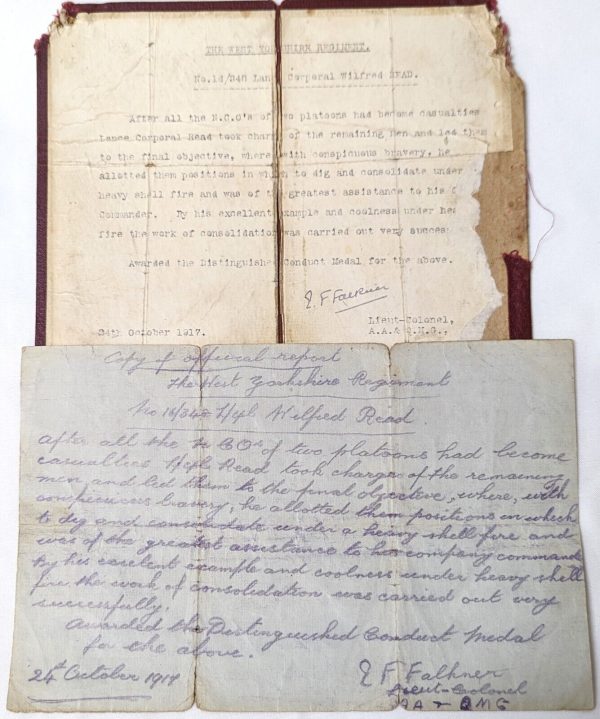 THE WEST YORKSHIRE REGIMENT.
No.16/348 Lan Corporal Wilfred READ.
After all the N.C.O's of two platoons had become casualties
Lance Corporal Read took charge of the remaining men and led them
to the final objective, where, with conspicuous bravery, he
allotted them positions in which to dig and consolidate under
heavy shell fire and was of the greatest assistance to his C
Commander. By his excellent example and coolness under hea
fire the work of consolidation was carried out very succes
Awarded the Distinguished Conduct Medal for the above.
E F Falkner
Lieut-Colonel,
24th October 1917. A.A.& Q.M.G.,
Copy of official report
The West Yorkshire Regiment
No 16/348 L/Cpl Wilfred Read
After all the N COs of two platoons had become
casualties L/Cpl Read took charge of the remaining
men, and led them to the final objective, where, with
conspicuous bravery, he allotted them positions in which
to dig and consolidate under a heavy shell fire and
was of the greatest assistance to his company command
By his excelent example and coolness under heavy shell
fire the work of consolidation was carried out very
successfully.
Awarded the Distinguished Conduct Medal
for the above.
E F Falkner
24th October 1917 Lieut-Colonel
AA & QMG